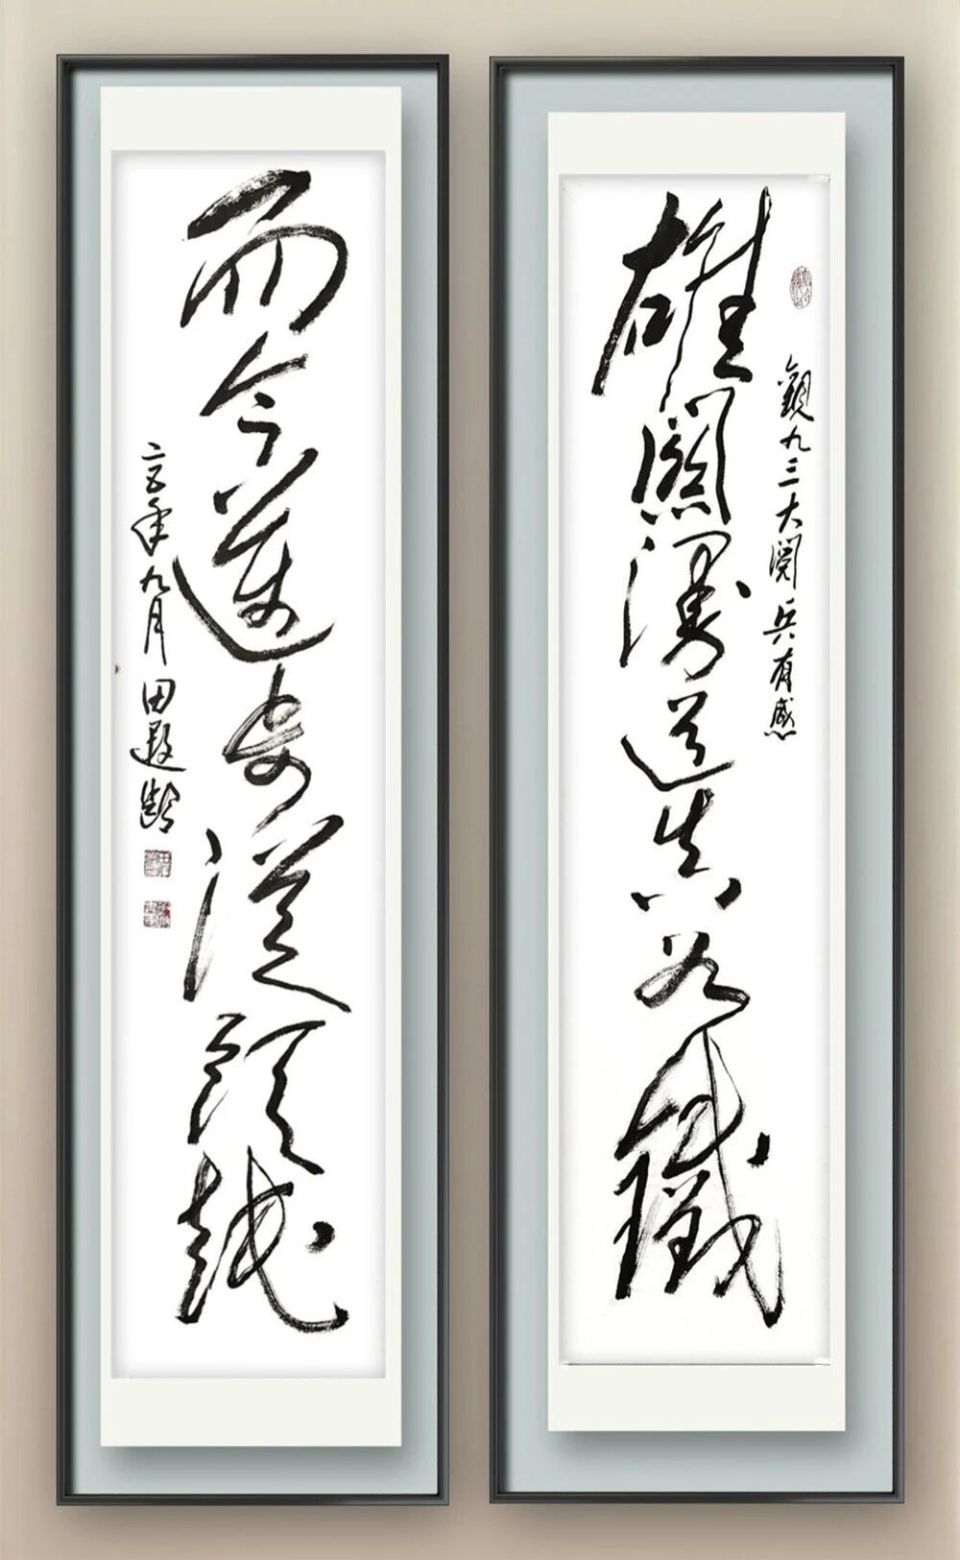 觀九三大閱兵有感
雄關漫道真如鐵
而今邁步從頭越
二五年九月田遐齡